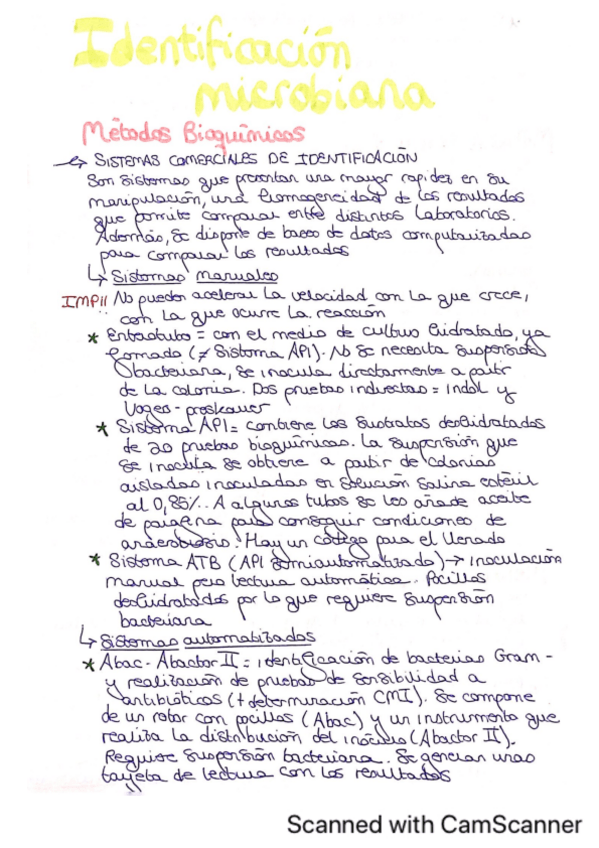 Identificación
microbiana
Métodos Bioquímicos
↳ SISTEMAS COMERCIALES DE IDENTIFICACIÓN
Son sistemas que presentan una mayor rapidez en su
manipulación, una homogeneidad de los resultados
que permite comparar entre distintos laboratorios.
Además, se dispone de bases de datos computarizadas
para comparar los resultados
↳ Sistemas manuales
IMP!! No pueden acelerar la velocidad con la que crece,
con la que ocurre la reacción
* Enterotubo = con el medio de cultivo hidratado, ya
formado (≠ Sistema API). No se necesita suspensión
bacteriana, se inocula directamente a partir
de la colonia. Dos pruebas indirectas = Indol y
Voges-proskauer
* Sistema API = contiene los sustratos deshidratados
de 20 pruebas bioquímicas. La suspensión que
se inocula se obtiene a partir de colonias
aisladas inoculadas en solución salina estéril
al 0,85%. A algunos tubos se les añade aceite
de parafina para conseguir condiciones de
anaerobiosis. Hay un código para el llenado
* Sistema ATB (API semiautomatizado) → inoculación
manual pero lectura automática. Pocillos
deshidratados por lo que requiere suspensión
bacteriana
↳ Sistemas automatizados
* Abac - Abactor II = identificación de bacterias Gram -
y realización de pruebas de sensibilidad a
antibióticos (+ determinación CMI). Se compone
de un rotor con pocillos (Abac) y un instrumento que
realiza la distribución del inóculo (Abactor II).
Requiere suspensión bacteriana. Se generan unas
tarjeta de lectura con los resultados
Scanned with CamScanner